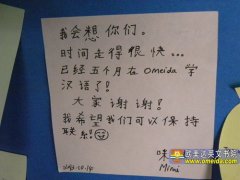 我会想你们。
时间走得很快...
已经五个月在 Omeida 学
汉语了!
大家谢谢!
我希望我们可以保持
联系!
咪
Mimi
欧美达英文书院
www.omeida.com